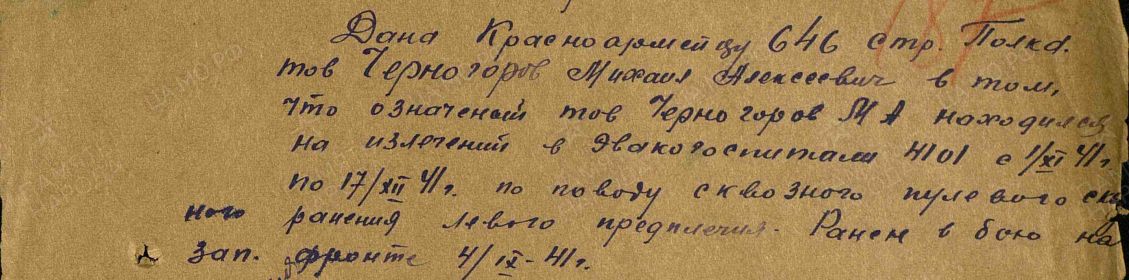 Дана Красноармейцу 646 стр. Полка.
тов Черногоров Михаил Алексеевич в том,
что означеный тов Черногоров М А находился
на излечений в Эвакогоспитали 4101 с 1/XI 41г.
по 17/XII 41г. по поводу сквозного пулевого
ного ранения левого предплечия. Ранен в бою на
Зап. фронте 4/IX-41г.